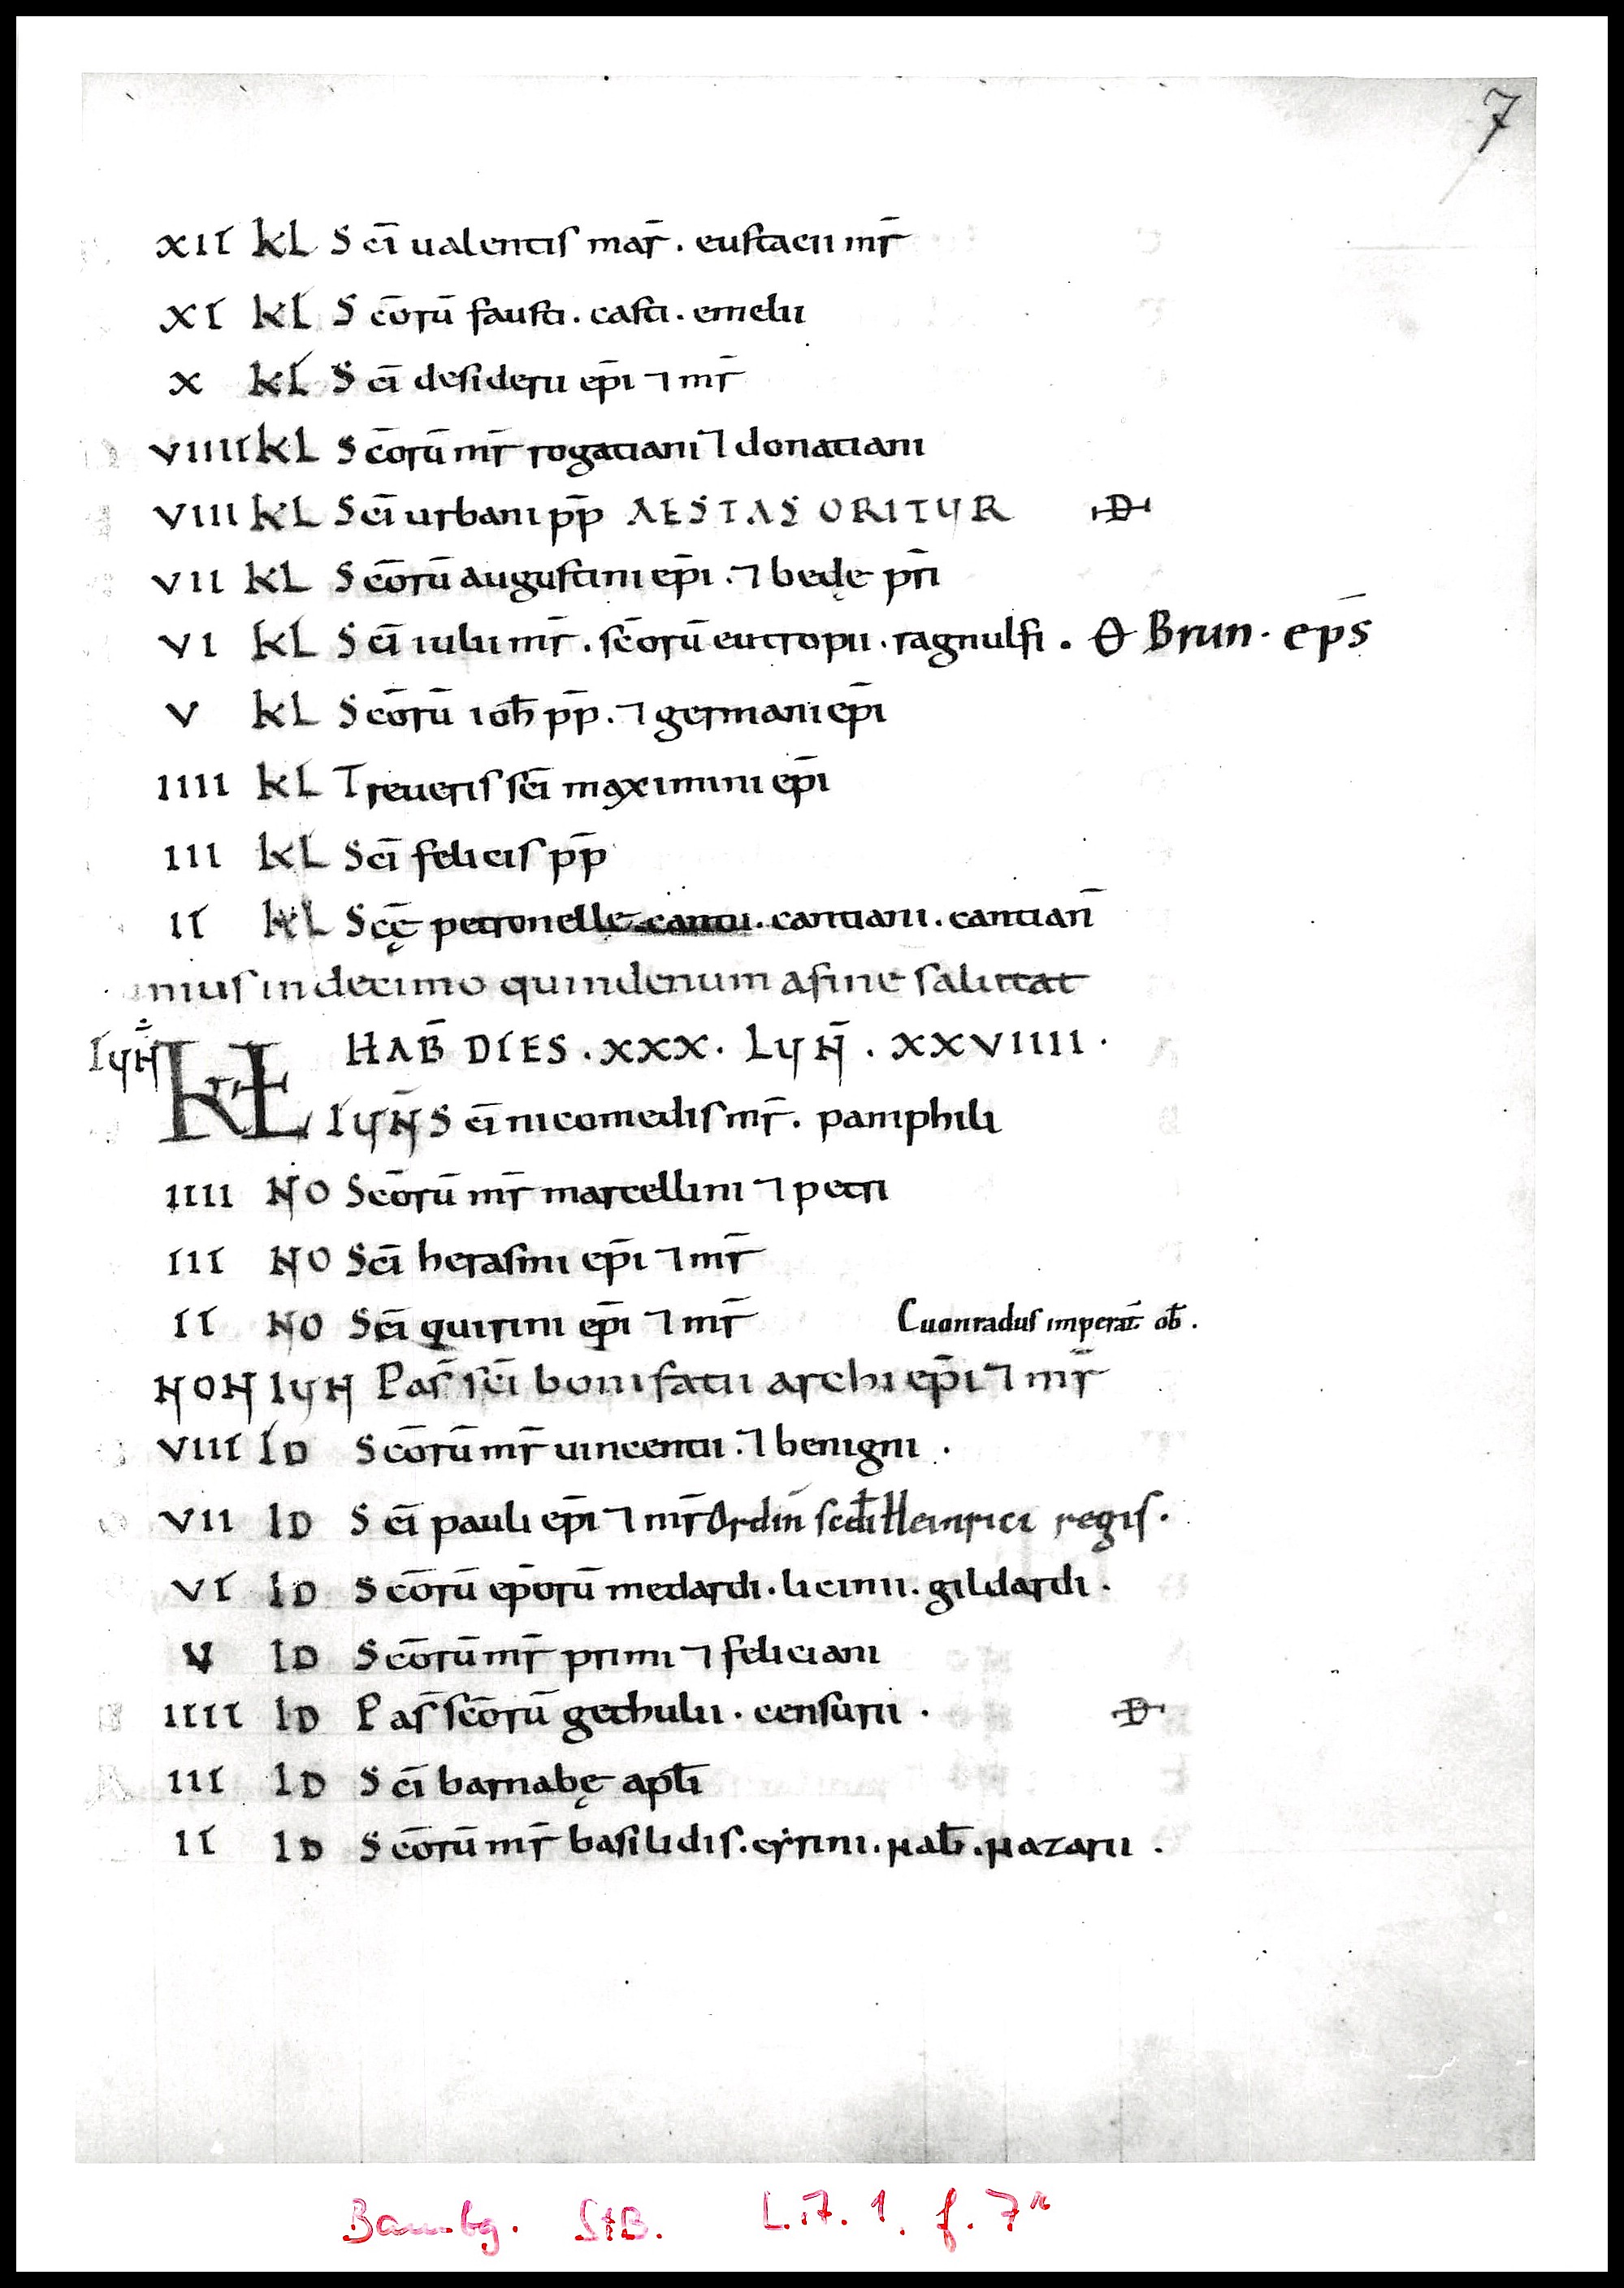 7
XII KL Sc̄i ualentis mar̄. eustacii mr̄
XI KL Sc̄orū fausti. casti. emelii
X KL Sc̄i desiderii ep̄i ⁊ mr̄
VIIII KL Sc̄orū mr̄ rogatiani ⁊ donatiani
VIII KL Sc̄i urbani pp̄ AESTAS ORITUR Đ
VII KL Sc̄orū augustini ep̄i. ⁊ bedę pr̄i
VI KL Sc̄i iulii mr̄. sc̄orū eutropii. ragnulfi. Θ Brun. ep̄s
V KL Sc̄orū ioh̄ pp̄. ⁊ germani ep̄i
IIII KL Treueris sc̄i maximini ep̄i
III KL Sc̄i felicis pp̄
II KL Sc̄ę petronellę. cantii. cantiani. cantian̄
unius in decimo quindenum a fine salutat
IUN̄ KŁ HAB̄ DIES. XXX. LUN̄. XXVIIII.
IUN̄ Sc̄i nicomedis mr̄. pamphili
IIII NO Sc̄orū mr̄ marcellini ⁊ petri
III NO Sc̄i herasmi ep̄i ⁊ mr̄
II NO Sc̄i quirini ep̄i ⁊ mr̄ Cuonradus imperat̄ ob̄.
NON IUN Pas̄ sc̄i bonifatii archiep̄i ⁊ mr̄
VIII ID Sc̄orū mr̄ uincentii. ⁊ benigni.
VII ID Sc̄i pauli ep̄i ⁊ mr̄ Ordin̄ scd̄i Heinrici regis.
VI ID Sc̄orū ep̄orū medardi. licinii. gildardi.
V ID Sc̄orū mr̄ primi ⁊ feliciani
IIII ID Pas̄ sc̄orū gethulii. censurii. Đ
III ID Sc̄i barnabę apƚi
II ID Sc̄orū mr̄ basilidis. cẏrini. Nab̄. Nazarii.
Bambg. StB. Lit. 1. f. 7r